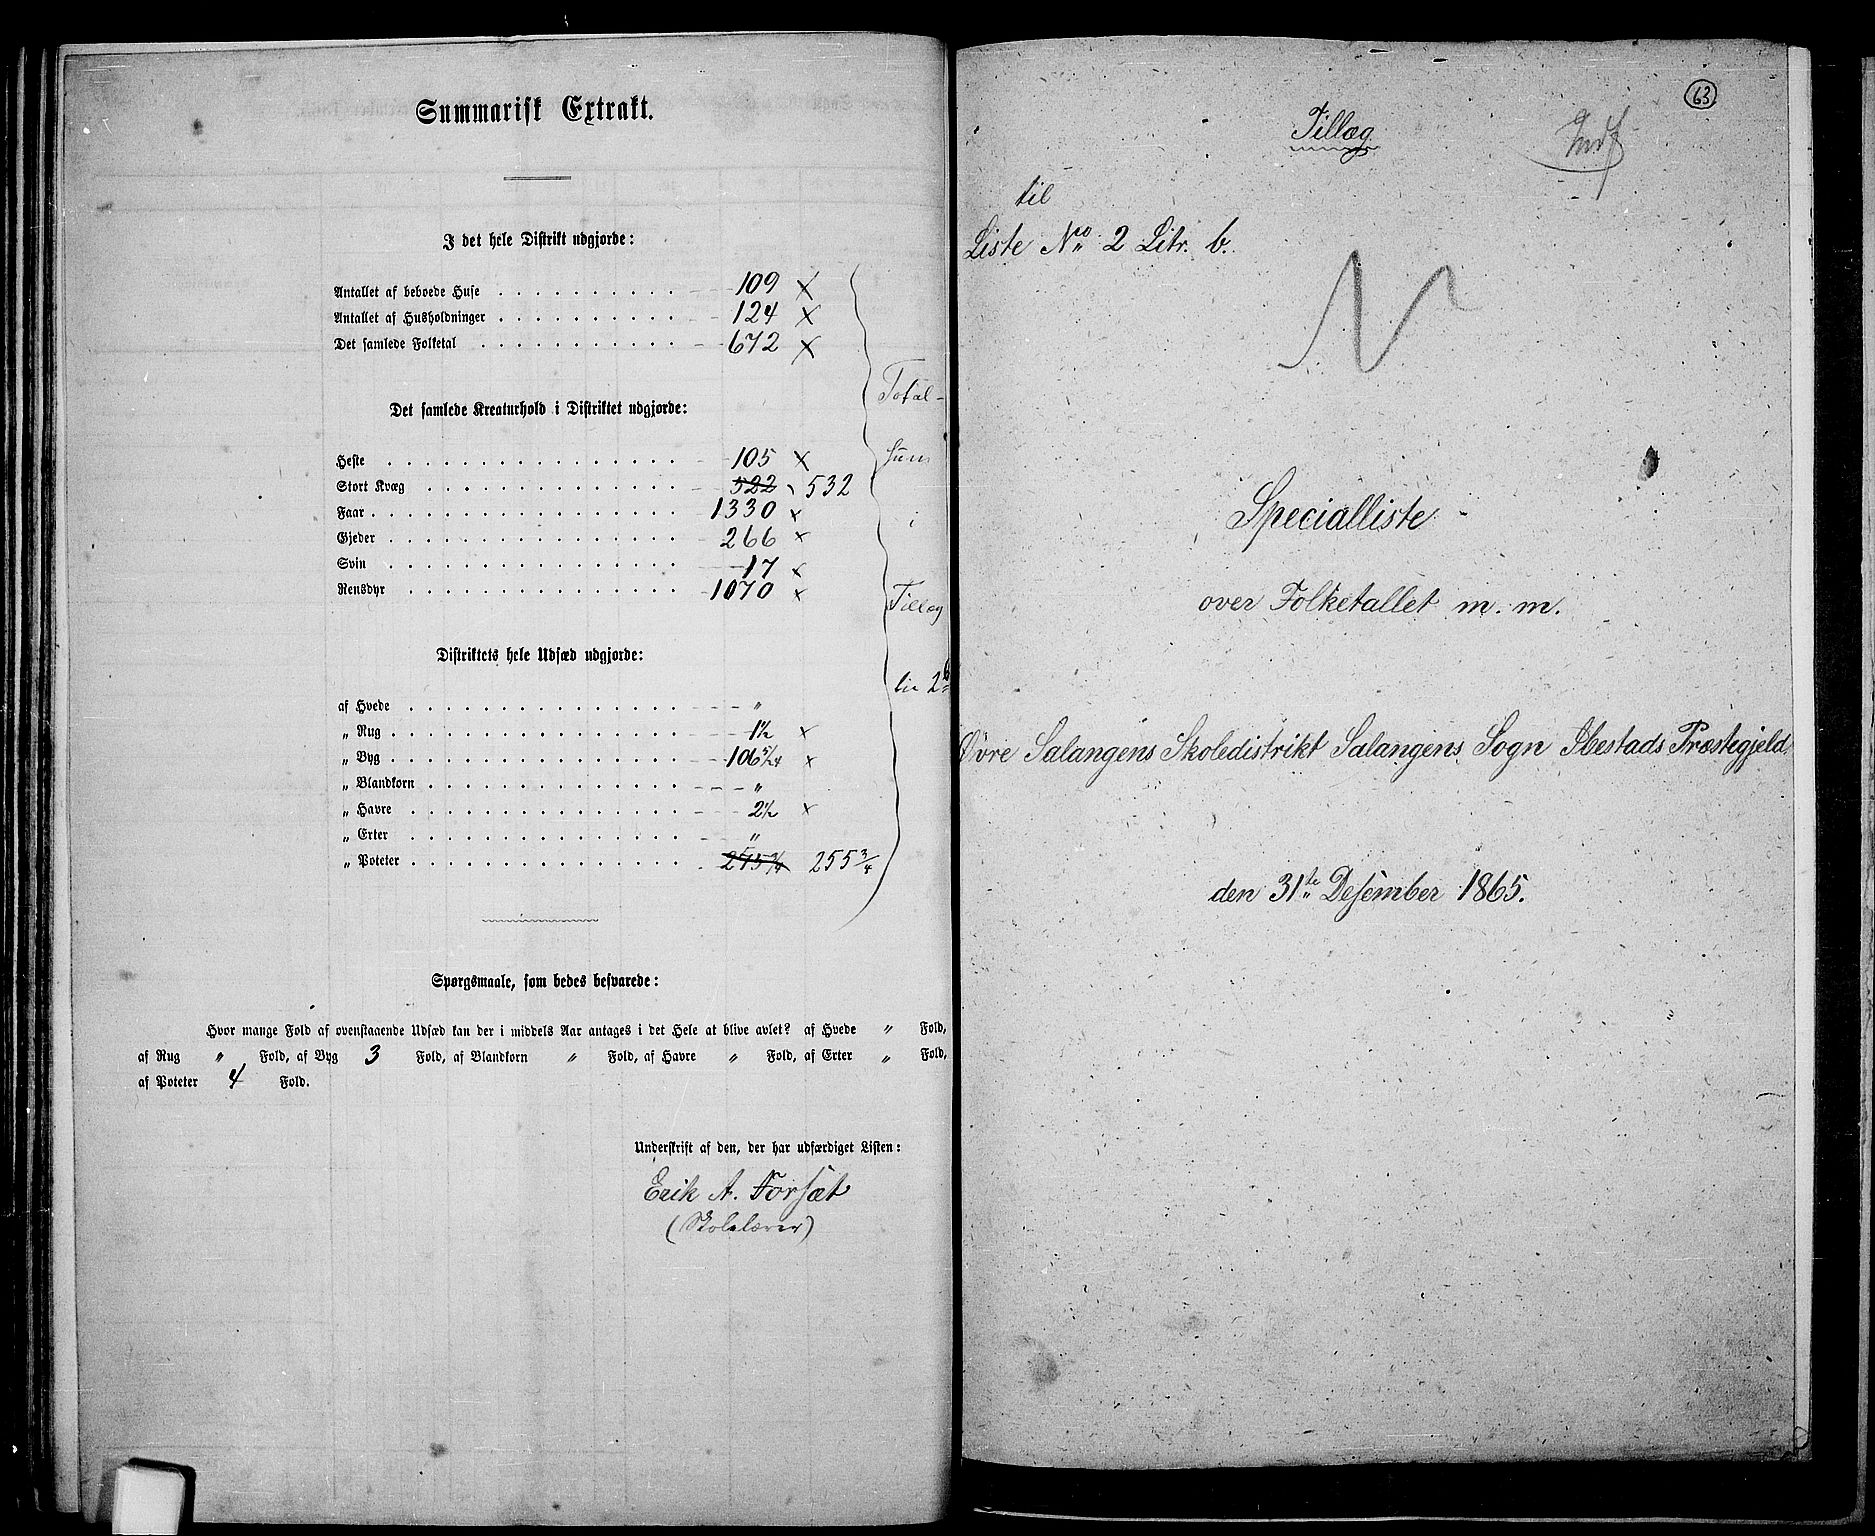 Summarisk Extrakt.
I det hele Distrikt udgjorde:
Antallet af beboede Huse . . . . . . . . . . 109 ×
Antallet af Husholdninger . . . . . . . . . . 124 ×
Det samlede Folketal . . . . . . . . . . . 672 ×
Det samlede Kreaturhold i Distriktet udgjorde:
Heste . . . . . . . . . . . . . . . . 105 ×
Stort Kvæg . . . . . . . . . . . . . . 522 532
Faar . . . . . . . . . . . . . . . . . 1330 ×
Gjeder . . . . . . . . . . . . . . . . 266 ×
Svin . . . . . . . . . . . . . . . . 17 ×
Rensdyr . . . . . . . . . . . . . . . 1070 ×
Total-
sum
i
Tillæg
Distriktets hele Udsæd udgjorde:
af Hvede . . . . . . . . . . . . . . . "
„ Rug . . . . . . . . . . . . . . . . 1½ ×
„ Byg . . . . . . . . . . . . . . . . 106 5/24 ×
„ Blandkorn . . . . . . . . . . . . . . "
„ Havre . . . . . . . . . . . . . . . 2½ ×
„ Erter . . . . . . . . . . . . . . . "
„ Poteter . . . . . . . . . . . . . . . 255 3/4
Spørgsmaale, som bedes besvarede:
Hvor mange Fold af ovenstaaende Udsæd kan der i middels Aar antages i det Hele at blive avlet? af Hvede " Fold,
af Rug " Fold, af Byg 3 Fold, af Blandkorn " Fold, af Havre " Fold, af Erter " Fold,
af Poteter 4 Fold.
Underskrift af den, der har udfærdiget Listen:
Erik A. Forsæt
(Skolelærer)
63.
Tillæg
til
Liste No 2 Litr. b.
Specialliste
over Folketallet m. m.
Øvre Salangens Skoledistrikt Salangens Sogn Ibestads Præstegjeld
den 31te Desember 1865.